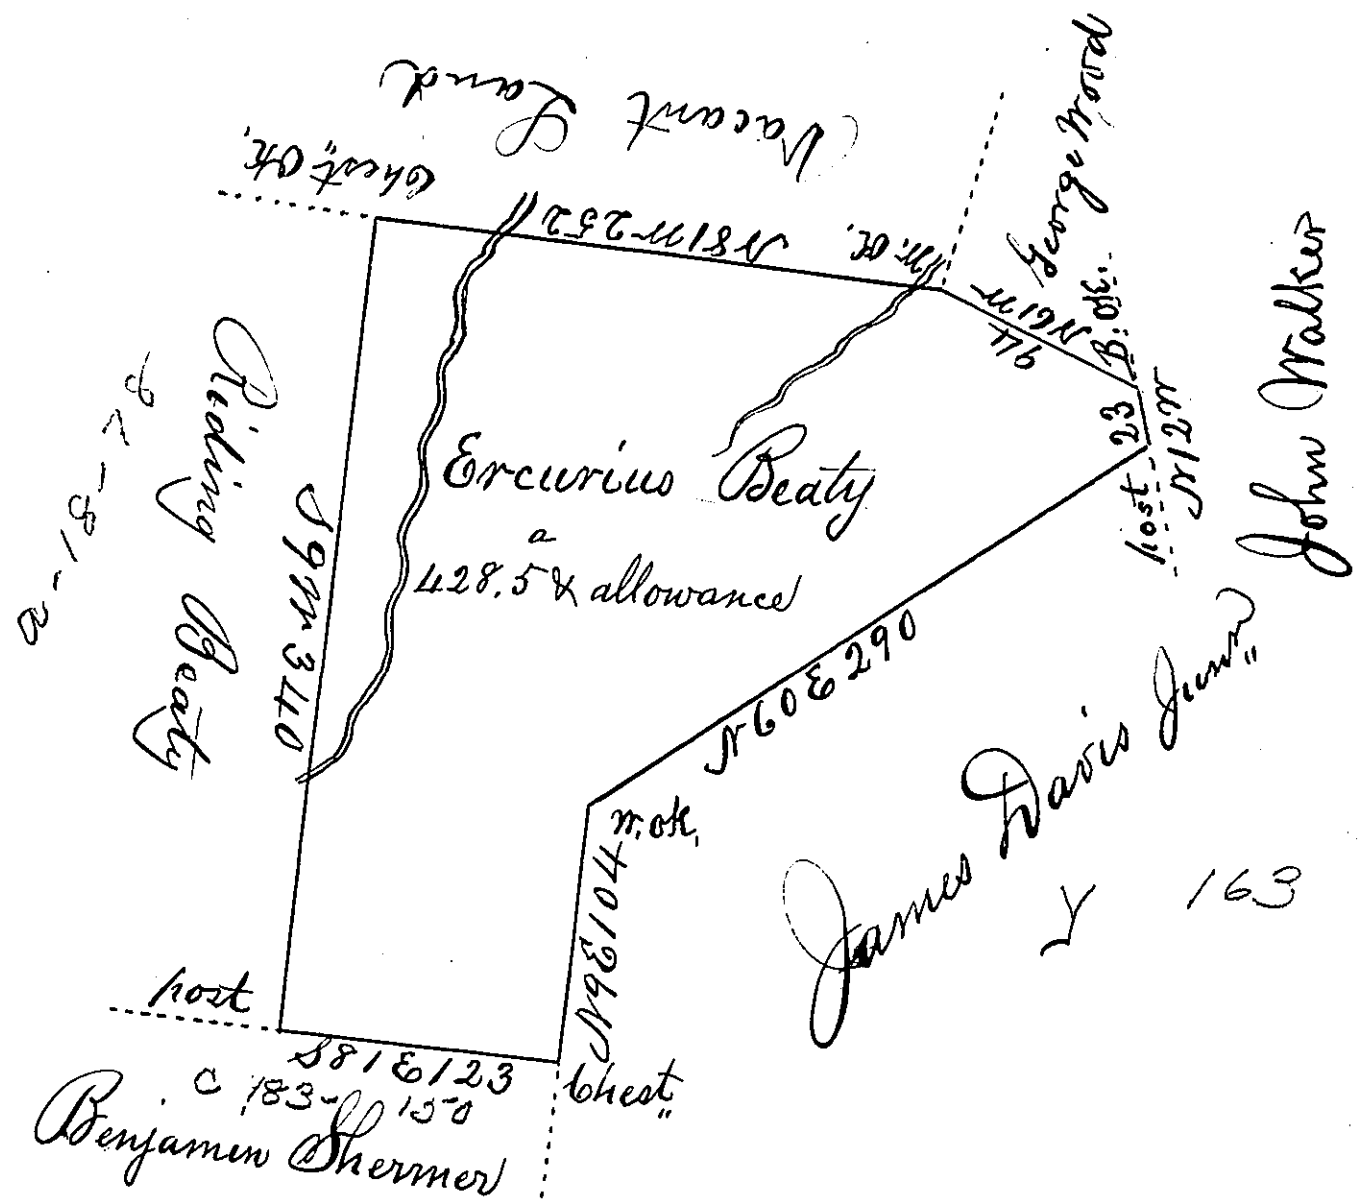 Vacant Land
Chest,, Ok,
N81W 252
W. Ok.
George Wood
N61W
94
B. Ok.
23
N12W
post
John Walker
Riding Beaty
S9W 340
Ercurius Beaty
a
428.5 & allowance
N60E 290
James Davis Junr,,
Y 163
W. Ok,
N9E 104
post
S81E 123
Chest,,
C 183- 150
Benjamin Shermer